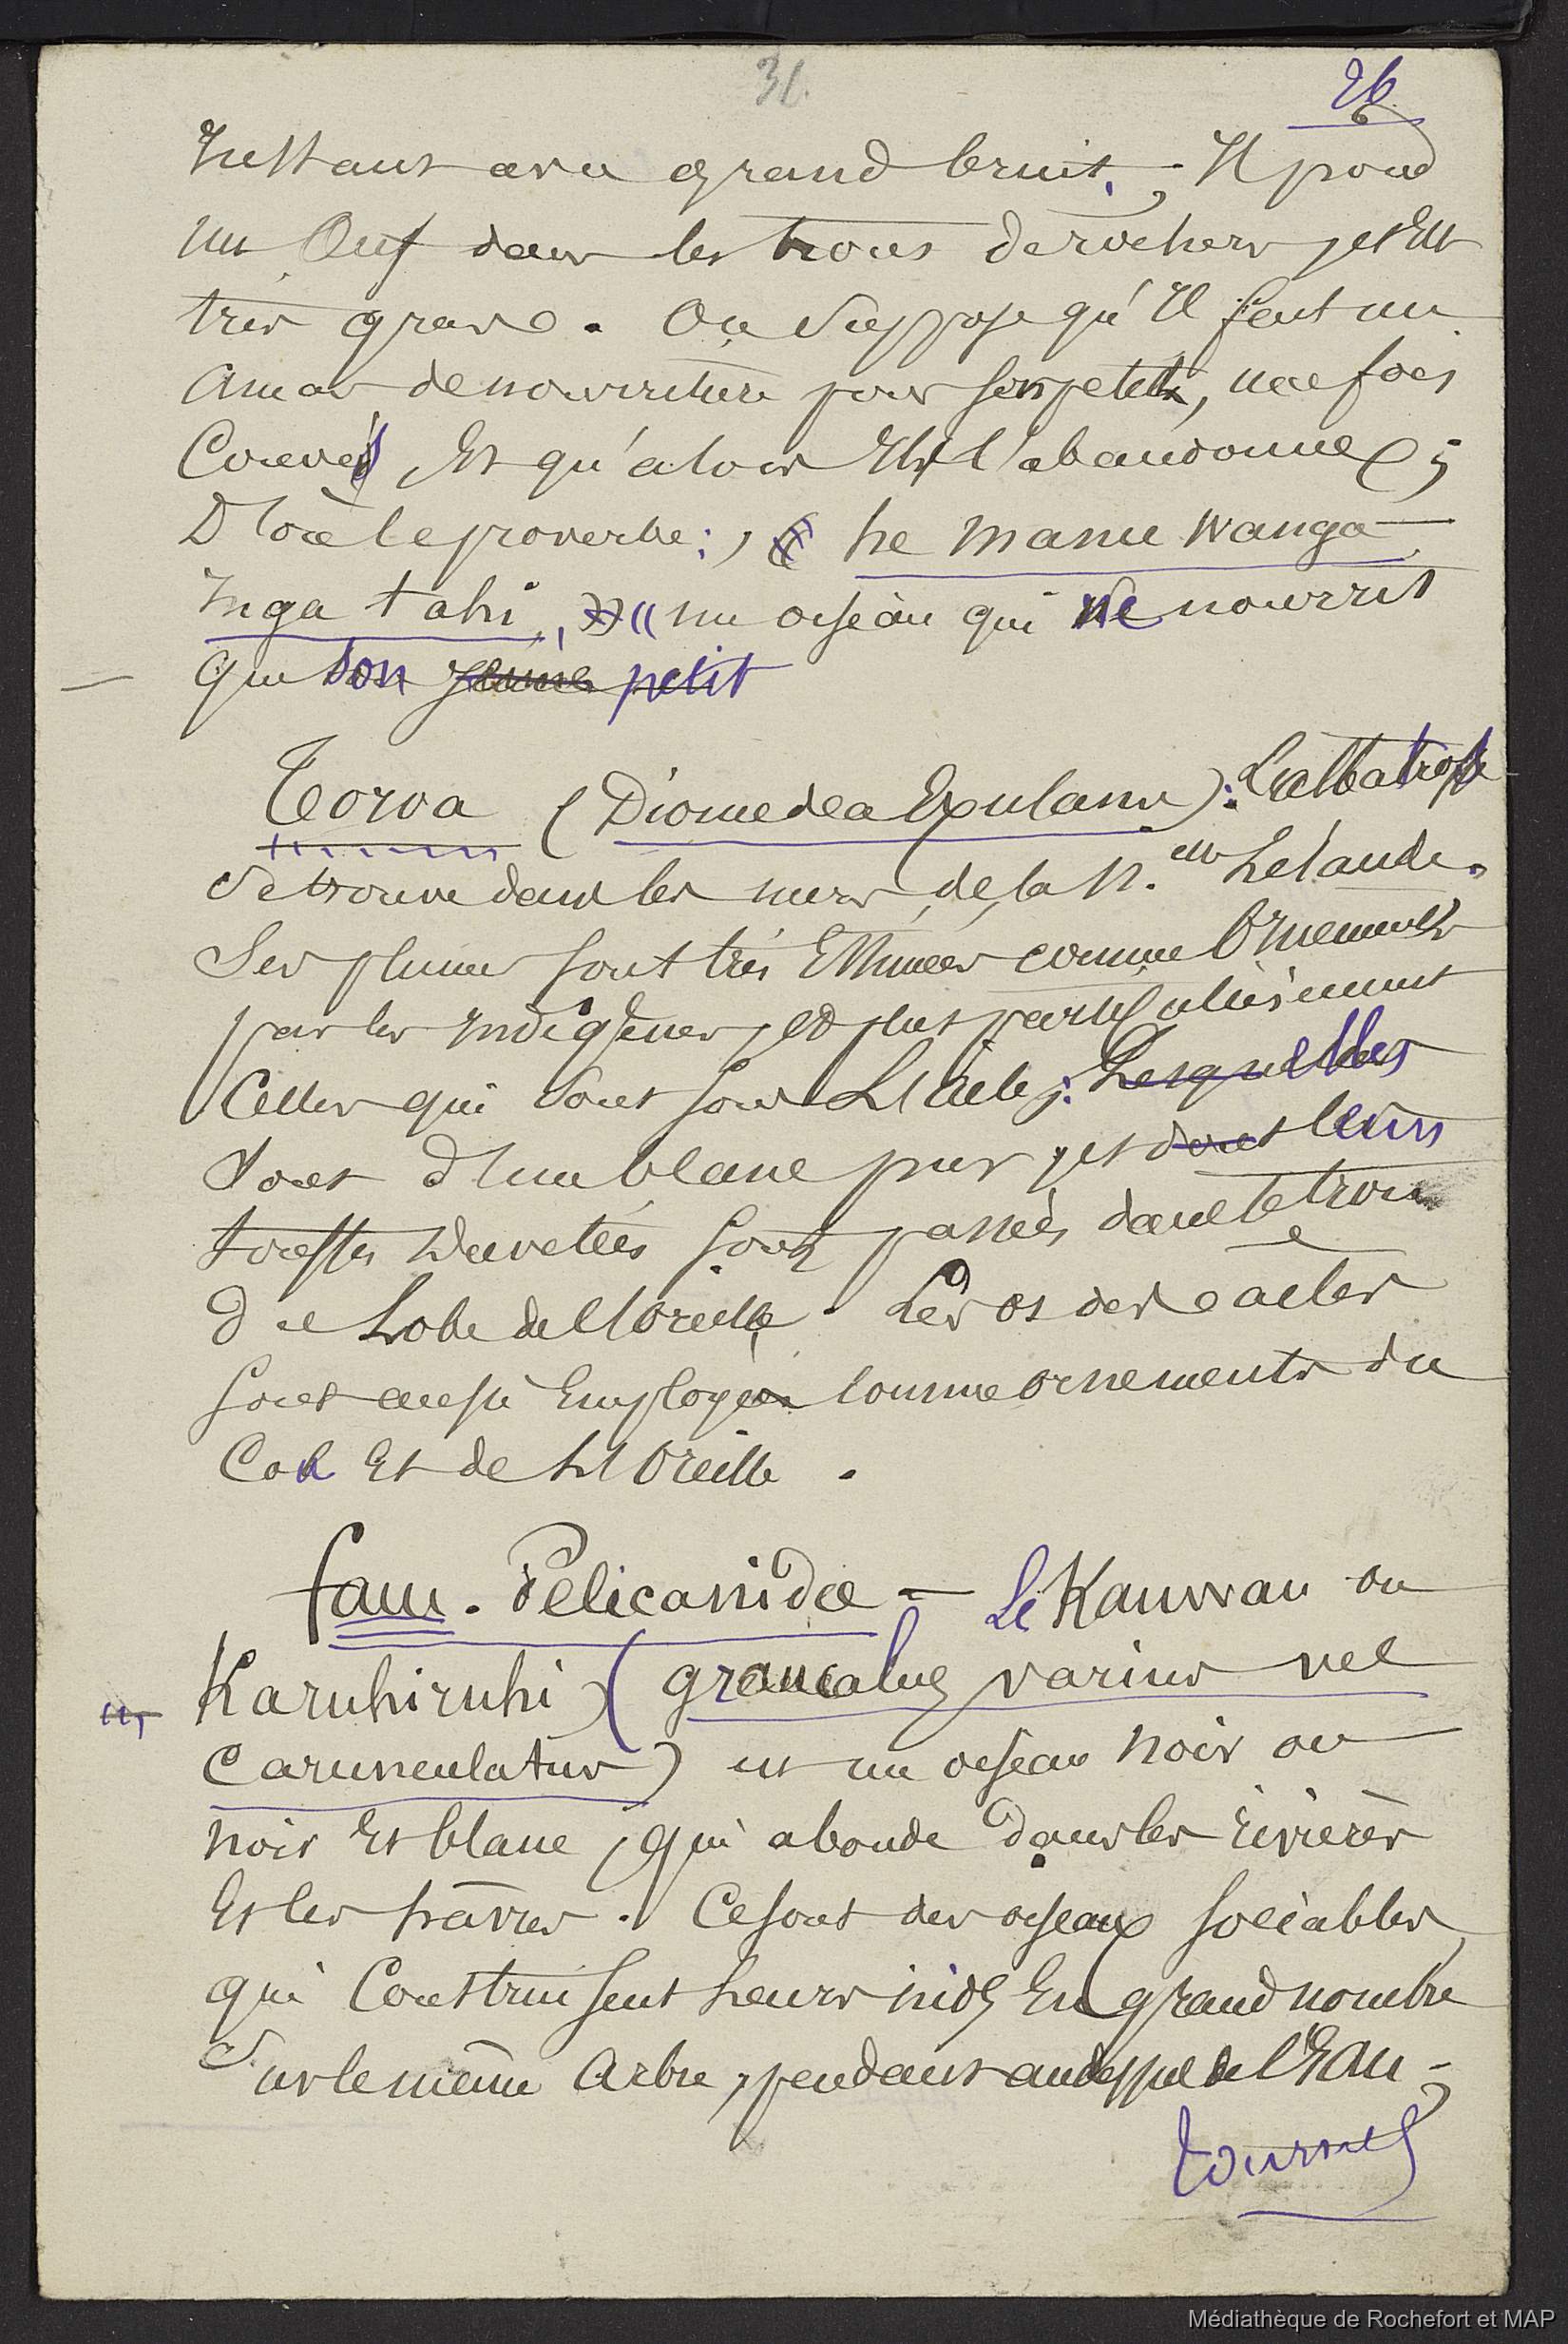 31.
26
Instant avec grand bruit. Il pond
un Œuf dans les trous de rochers, et Est
très gras. On Suppose qu'Il fait un
Amas de nourriture pour son petit, une fois
Couvé, Et qu'alors Il l'abandonne;
D'où le proverbe: he manu wanga
inga tahi, « un oiseau qui ne nourrit
que son jeune petit
Toroa (Diomedea Exulans): L'albatros
Se trouve dans les mers de la N.elle Zélande.
Ses plumes sont très Estimées comme Ornements
par les Indigènes, et plus particulièrement
Celles qui sont sous L'Aile; Lesquelles
sont d'un blanc pur, et dont leurs
touffes duvetées sont passées dans le trou
du Lobe de l'oreille. Les os des ailes
sont aussi Employés comme ornements du
Cou Et de L'Oreille.
fam. Pelicanidæ — Le Kauwau ou
Karuhiruhi (graucalus varius vel
Carunculatus) est un oiseau noir ou
noir Et blanc, qui abonde dans les rivières
Et les hâvres. Ce sont des oiseaux sociables
qui Construisent Leurs nids En grand nombre
Sur le même Arbre, pendant au dessus de l'Eau;
tournez
Médiathèque de Rochefort et MAP